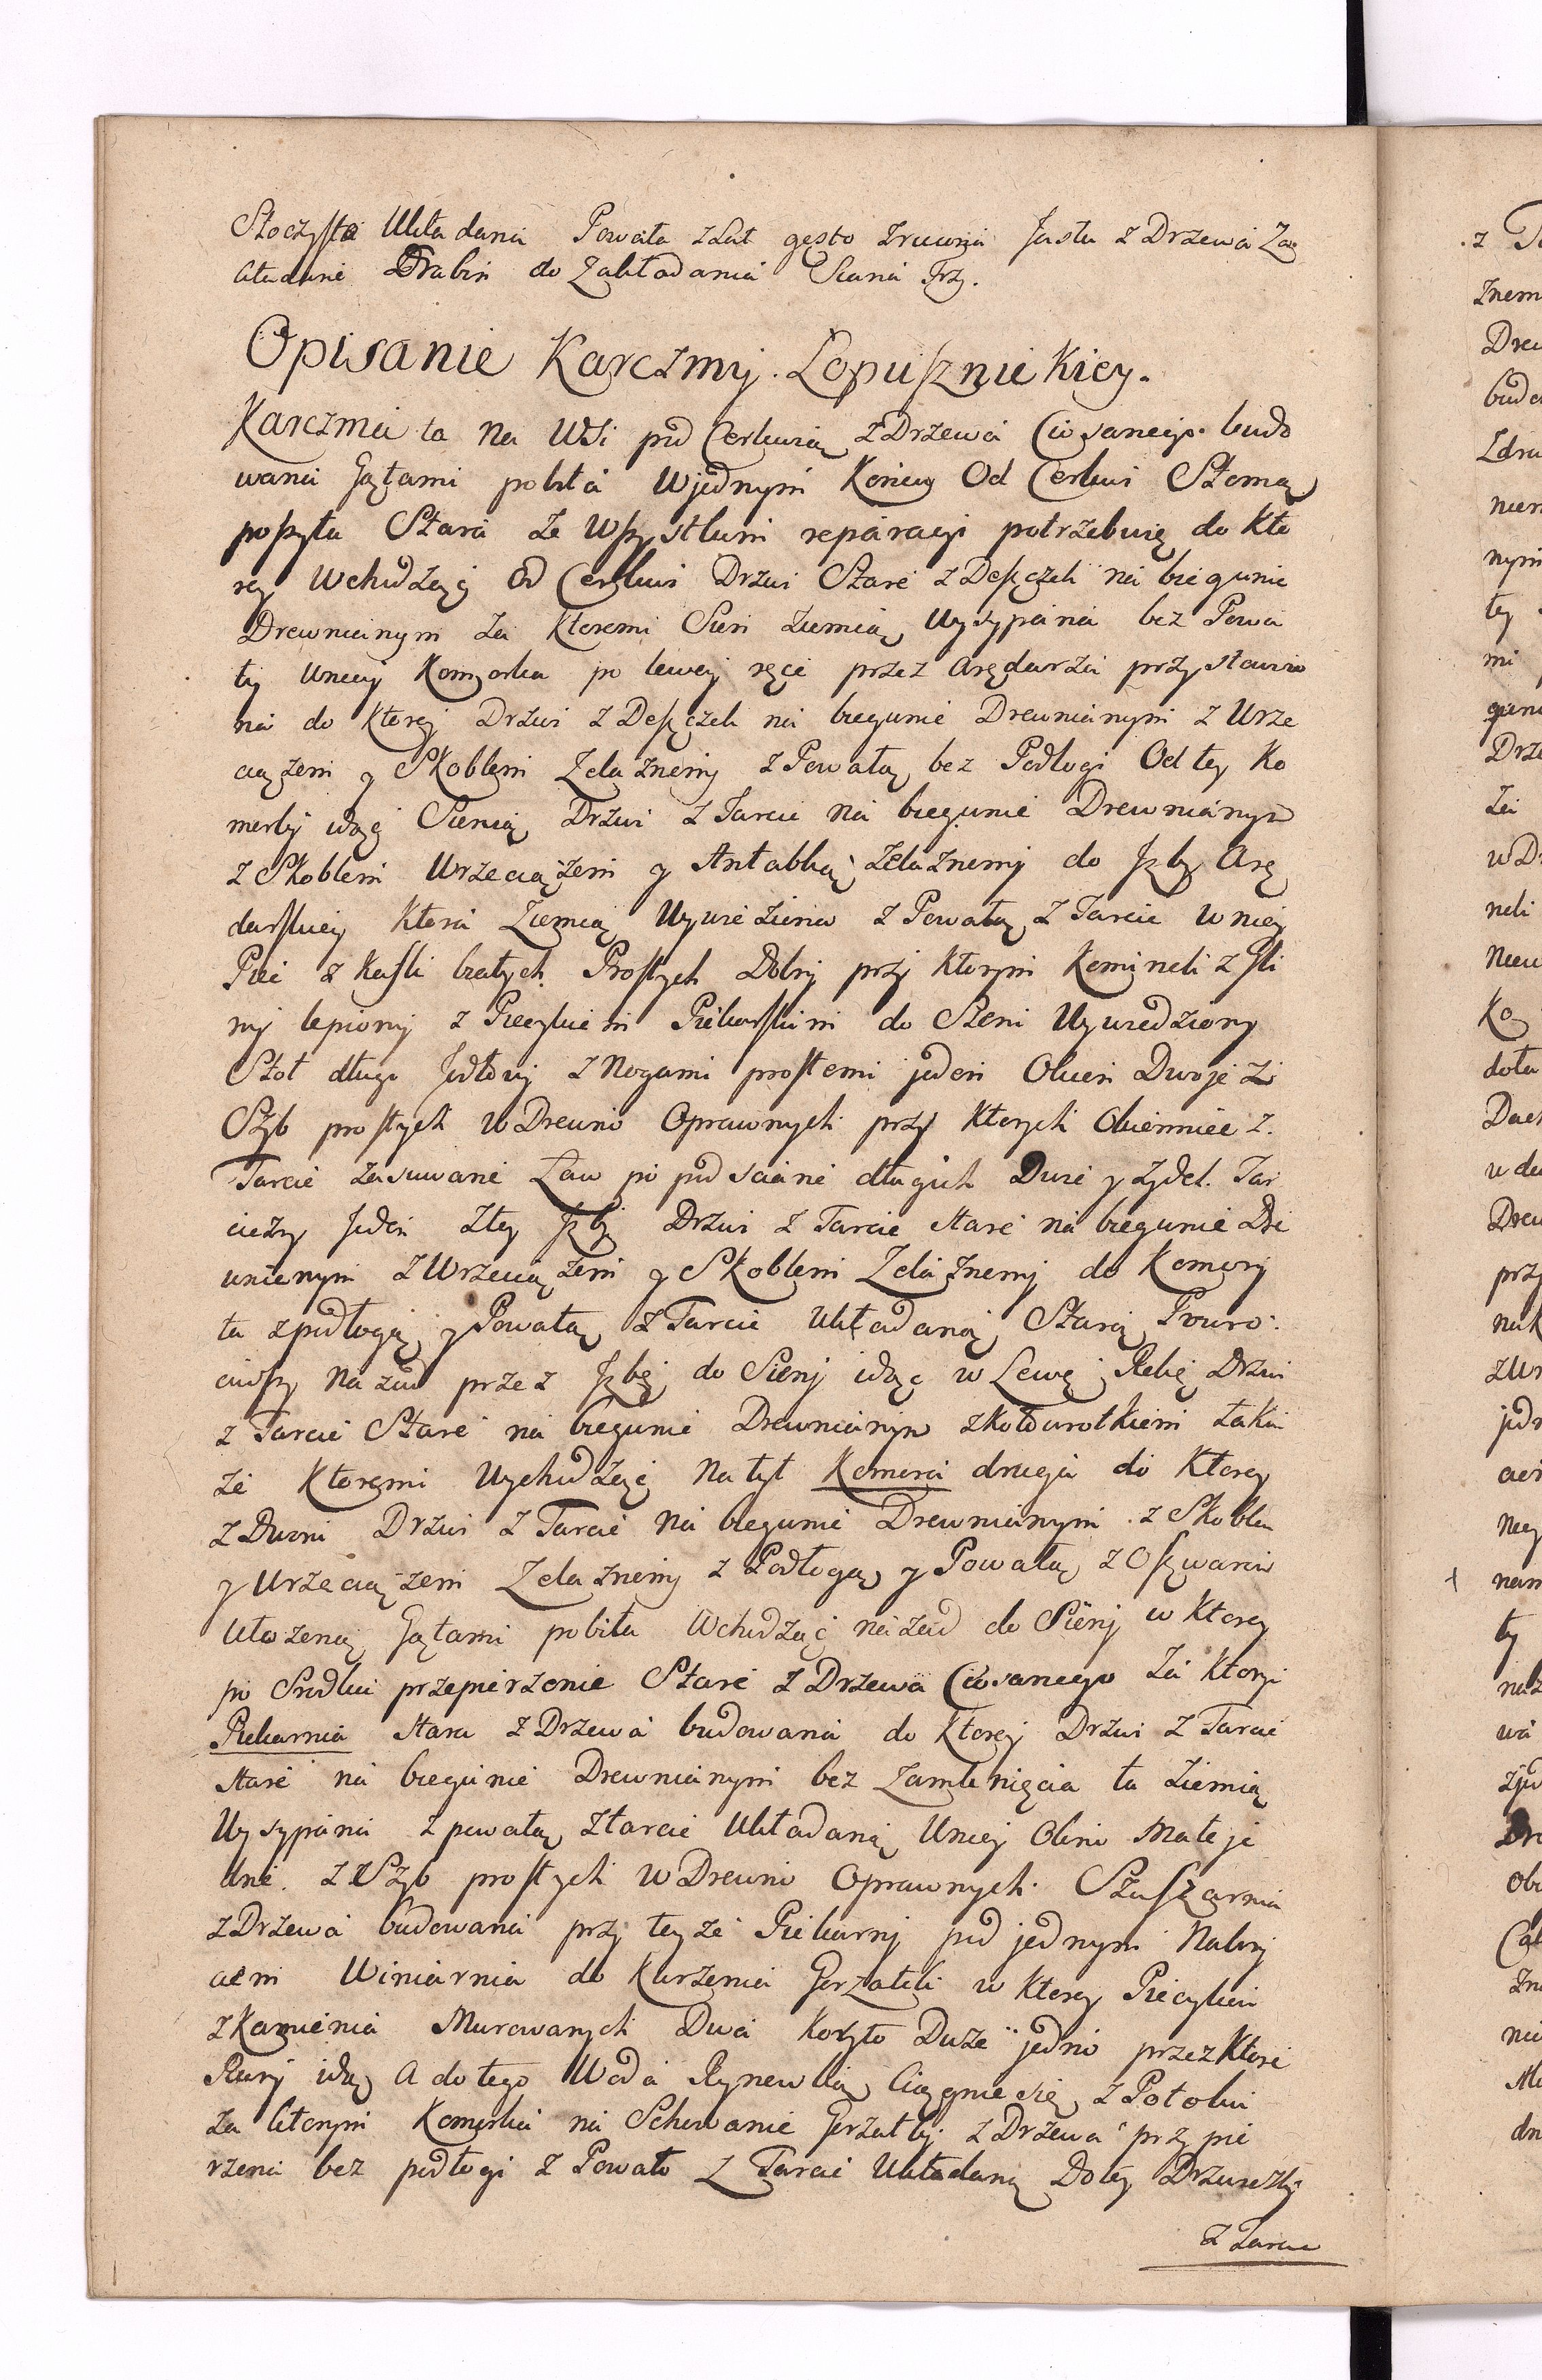 Stoczysta Układana Powała z Łat gęsto zrucona Jasła z Drzewa Za
kładane Drabin do Zakładania Siana Trzy.
Opisanie Karczmy. Łopusznickiey.
Karczma ta na Wsi pod Cerkwią z Drzewa Ciosanego budo
wana Gątami pobita w jednym Koncu Od Cerkwi Słomą
poszyta Stara ze Wszystkim reparacyi potrzebuię do Kto
rey Wchodząc Od Cerkwi Drzwi Stare z Deszczek na biegunie
Drewnianym za Ktoremi Sien ziemią Wysypana bez Powa
ły Wniey Komorka po lewey ręce przez Arędarza przystawio
na do Ktorey Drzwi z Deszczek na biegunie Drewnianym z Wrze
ciązem y Skoblem Zelaznemy z Powałą bez Podłogi Od tey Ko
morky idąc Sienią Drzwi z Tarcic na biegunie Drewnianym
z Skoblem Wrzeciązem y Antabką Zelaznemy do Jzby Arę
darskiey Ktora Ziemią z Powałą z Tarcic w niey
Piec z Kafli białych Prostych Dobry przy Ktorym Kominek z Gli
ny lepiony z Piecykiem Piekarskim do Sieni Wywiedziony
Stoł długi Jodłowy z Nogami prostemi jeden Okien Dwoje Ze
Szyb prostych w Drewno Oprawnych przy Ktorych Okiennice z
Tarcic zasuwane Ław po pod sciane długich Dwie y Zydel Tar
ciczny Jeden Ztey Jzby Drzwi z Tarcic stare na biegunie Dre
wnianym z Wrzeciązem y Skoblem Zelaznemy do Komory
ta z podłogą y Powałą z Tarcic Układaną Starą Powro
ciwszy nazad przez Jzbę do Sieny idąc w Lewę Rekę Drzwi
z Tarcic Stare na biegunie Drewnianym z Kołowrotkiem taki
ze Ktoremi Wychodząc na tył Komora druga do Ktorey
z Dworu Drzwi z Tarcic na biegunie Drewnianym z Skoblem
y Wrzeciązem Zelaznemy z Podłogą y Powałą z Oszwarow
ułozoną Gątami pobita Wchodząc nazad do Sieny w Ktorey
po Srodku przepierzenie Stare z Drzewa Ciosanego za Ktorym
Piekarnia stara z Drzewa budowana do Ktorey Drzwi z Tarcic
stare na biegunie Drewnianym bez Zamknięcia ta ziemią
Wysypana z powałą z tarcic Układaną Wniey Okno małe je
dne z Szyb prostych w Drewno Oprawnych Szuszarnia
z Drzewa budowana przy teyze Piekarny pod jednym Nakry
ciem Winiarnia do Kurzenia Gorzałki w Ktorey Piecykow
z Kamienia Murowanych Dwa Koryto Duze jedno przez Ktore
Rury idą A do tego Woda Rynewką Ciągnie się z Potoku
za Ktorym Komorka na Schowanie Gorzałky z Drzewa przypie
rzena bez podłogi z Powało z Tarcic Układaną Do tey Drzwiczky
z Tarcic